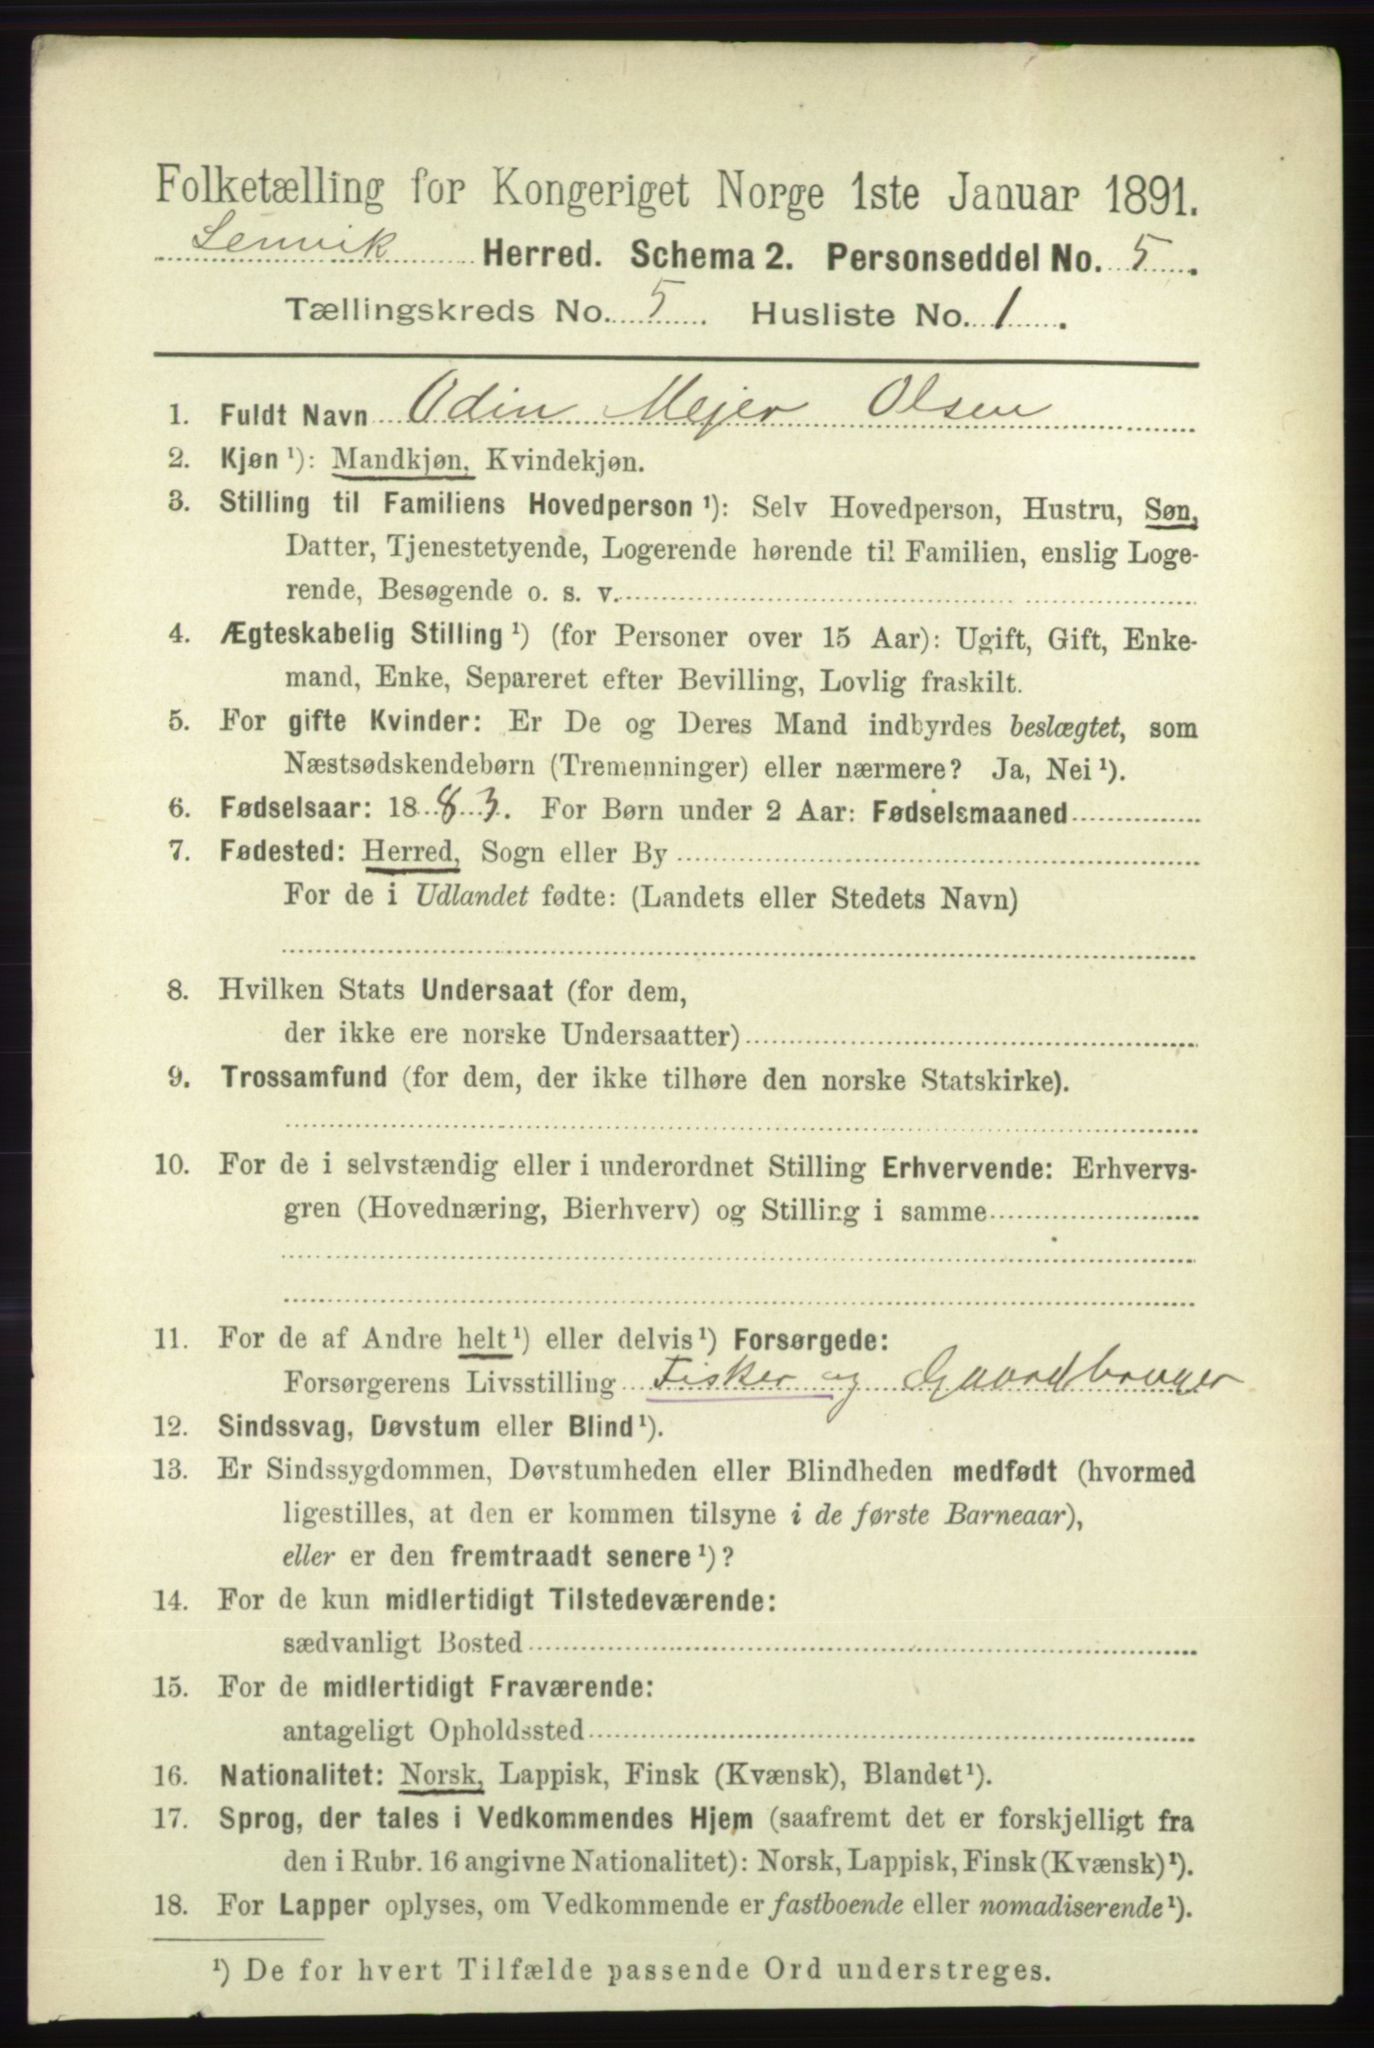 Folketælling for Kongeriget Norge 1ste Januar 1891.
Lenvik Herred. Schema 2. Personseddel No. 5.
Tællingskreds No. 5. Husliste No. 1.
1. Fuldt Navn Odin Mejer Olsen
2. Kjøn ¹): Mandkjøn, Kvindekjøn.
3. Stilling til Familiens Hovedperson ¹): Selv Hovedperson, Hustru, Søn,
Datter, Tjenestetyende, Logerende hørende til Familien, enslig Loge-
rende, Besøgende o. s. v.
4. Ægteskabelig Stilling ¹) (for Personer over 15 Aar): Ugift, Gift, Enke-
mand, Enke, Separeret efter Bevilling, Lovlig fraskilt.
5. For gifte Kvinder: Er De og Deres Mand indbyrdes beslægtet, som
Næstsødskendebørn (Tremenninger) eller nærmere? Ja, Nei ¹).
6. Fødselsaar: 1883. For Børn under 2 Aar: Fødselsmaaned
7. Fødested: Herred, Sogn eller By
For de i Udlandet fødte: (Landets eller Stedets Navn)
8. Hvilken Stats Undersaat (for dem,
der ikke ere norske Undersaatter)
9. Trossamfund (for dem, der ikke tilhøre den norske Statskirke).
10. For de i selvstændig eller i underordnet Stilling Erhvervende: Erhvervs-
gren (Hovednæring, Bierhverv) og Stilling i samme
11. For de af Andre helt ¹) eller delvis ¹) Forsørgede:
Forsørgerens Livsstilling Fisker og Gaardbruger
12. Sindssvag, Døvstum eller Blind ¹).
13. Er Sindssygdommen, Døvstumheden eller Blindheden medfødt (hvormed
ligestilles, at den er kommen tilsyne i de første Barneaar),
eller er den fremtraadt senere ¹)?
14. For de kun midlertidigt Tilstedeværende:
sædvanligt Bosted
15. For de midlertidigt Fraværende:
antageligt Opholdssted
16. Nationalitet: Norsk, Lappisk, Finsk (Kvænsk), Blandet ¹).
17. Sprog, der tales i Vedkommendes Hjem (saafremt det er forskjelligt fra
den i Rubr. 16 angivne Nationalitet): Norsk, Lappisk, Finsk (Kvænsk) ¹).
18. For Lapper oplyses, om Vedkommende er fastboende eller nomadiserende ¹).
¹) De for hvert Tilfælde passende Ord understreges.